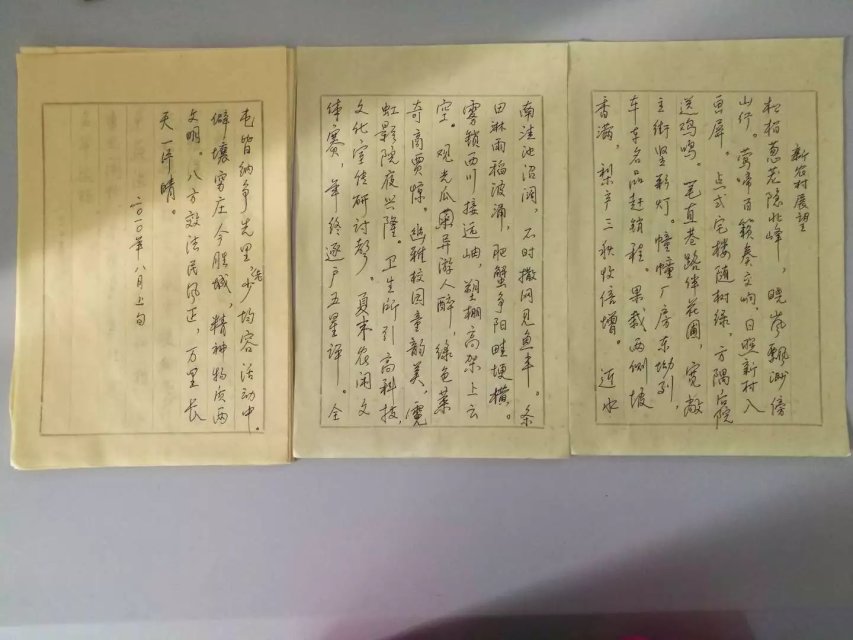 新农村展望
松柏葱茏隐北峰，晓岚飘渺傍
山行。莺啼百籁奏交响，日照新村入
画屏。点式宅楼随树绿，方隅后院
送鸡鸣。笔直巷路伴花圃，宽敞
主街竖彩灯。幢幢厂房东坳列，
车车名品赶销程。果栽两侧坡
香满，梨产三秋收倍增。近水
南洼池沼阔，不时撒网见鱼丰。条
田淋雨稻波涌，肥蟹争阳畦埂横。
雾锁西川接远岫，塑棚高架上云
空。观光瓜果异游人醉，绿色菜
奇商贾惊。幽雅校园童韵美，霓
虹影院夜兴隆。卫生所引高科技，
文化室传研讨声。夏末农闲文
体赛，年终逐户五星评。全
屯皆纳争先里，老少均容活动中。
僻壤穷庄今胜城，精神物质两
文明。八方效法民风正，万里长
天一片晴。
二〇一〇年八月上旬